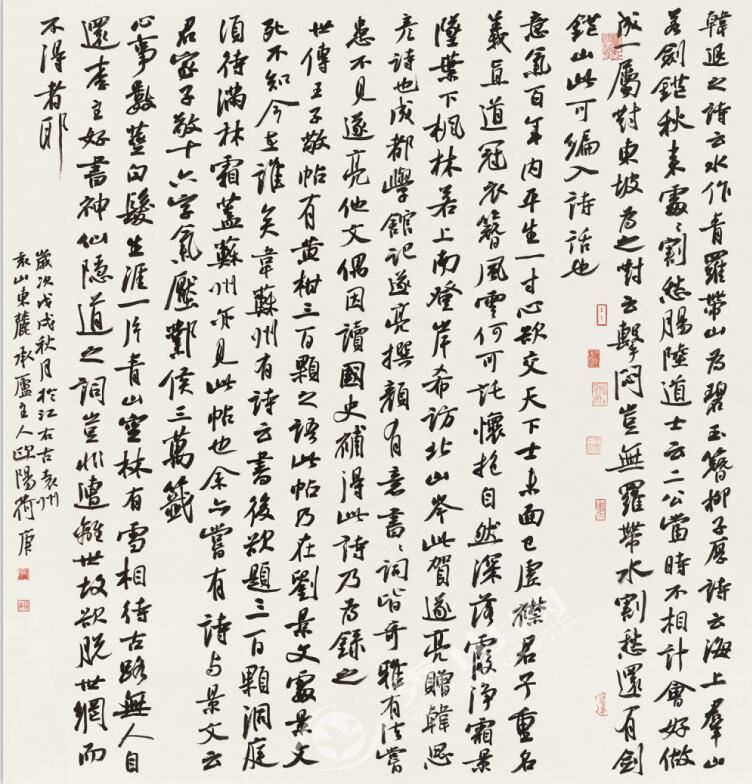 韓退之詩云水作青羅帶山為碧玉簪柳子厚詩云海上羣山
若劍鋩秋來處々割愁腸陸道士云二公當時不相計會好做
成一屬對東坡為之對云繫悶豈無羅帶水割愁還有劍
鋩山此可編入詩話也
意氣百年內平生一寸心欲交天下士未面已虛襟君子重名
義直道冠衣簪風雲何可託懷抱自然深落霞淨霜景
墜葉下楓林若上南登岸希訪北山岑此賀遂亮贈韓思
彥詩也成都學館記遂亮撰顏有意書々詞皆奇雅有法嘗
患不見遂亮他文偶因讀國史補得此詩乃為錄之
世傳王子敬帖有黃柑三百顆之語此帖乃在劉景文處景文
死不知今在誰矣韋蘇州有詩云書後欲題三百顆洞庭
須待滿林霜蓋蘇州亦見此帖也余亦嘗有詩与景文云
君家子敬十六字氣壓鄴侯三萬籤
心事數莖白髮生涯一片青山空林有雪相待古路無人自
還李主好書神仙隱遁之詞豈非遭離世故欲脫世網而
不得者耶
歲次戊戌秋月於江右古袁州
袁山東麓承廬主人歐陽荷庚